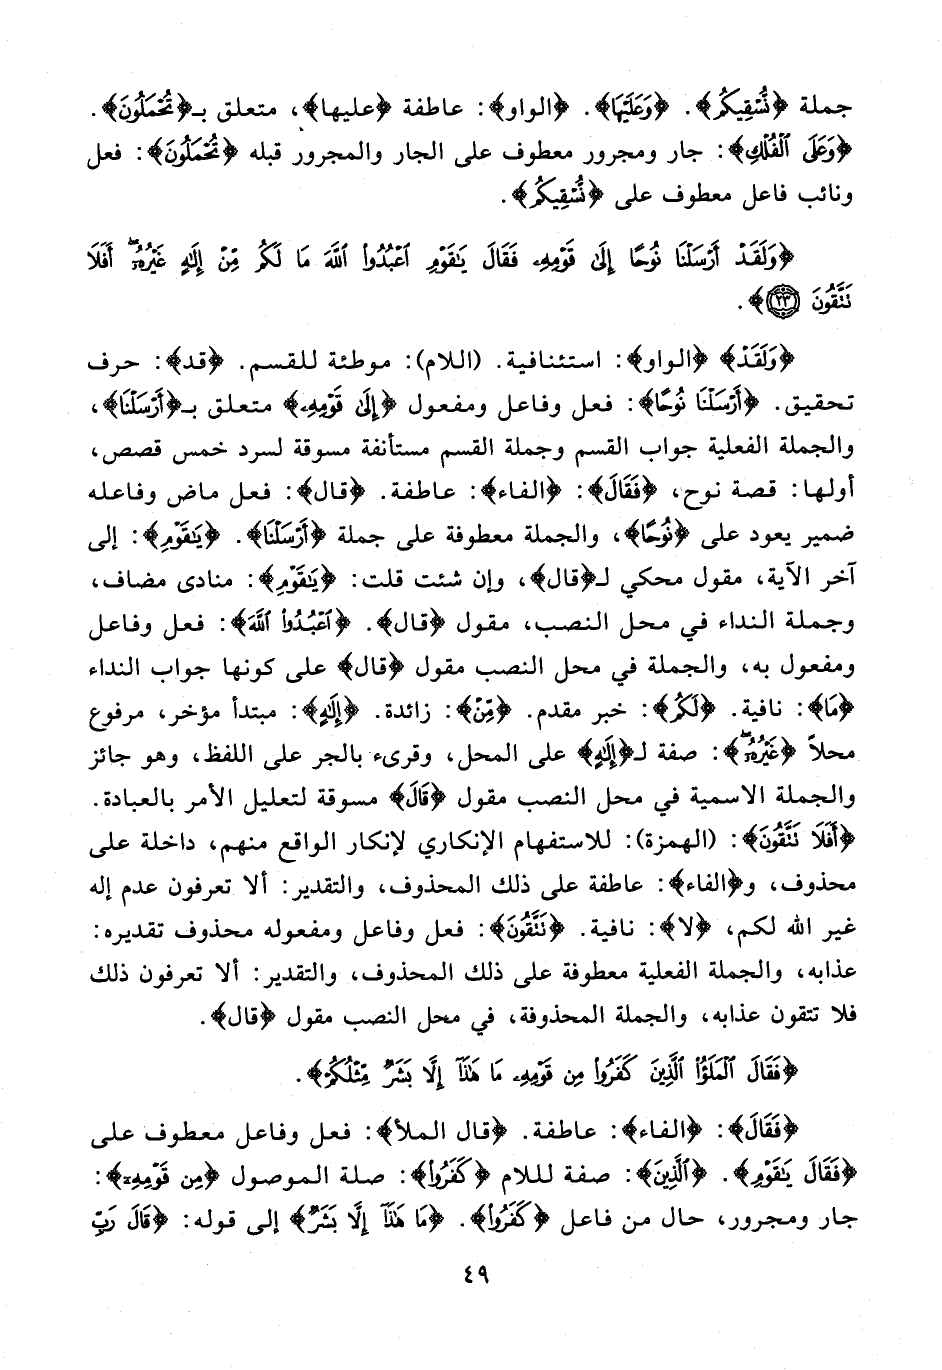 جملة ﴿نُّسْقِيكُم﴾. ﴿وَعَلَيْهَا﴾. ﴿الواو﴾: عاطفة ﴿عليها﴾، متعلق بـ﴿تُحْمَلُونَ﴾.
﴿وَعَلَى ٱلْفُلْكِ﴾: جار ومجرور معطوف على الجار والمجرور قبله ﴿تُحْمَلُونَ﴾: فعل
ونائب فاعل معطوف على ﴿نُّسْقِيكُم﴾.
﴿وَلَقَدْ أَرْسَلْنَا نُوحًا إِلَىٰ قَوْمِهِۦ فَقَالَ يَٰقَوْمِ ٱعْبُدُوا۟ ٱللَّهَ مَا لَكُم مِّنْ إِلَٰهٍ غَيْرُهُۥٓ ۖ أَفَلَا
تَتَّقُونَ ۝٢٣﴾.
﴿وَلَقَدْ﴾ ﴿الواو﴾: استئنافية. (اللام): موطئة للقسم. ﴿قد﴾: حرف
تحقيق. ﴿أَرْسَلْنَا نُوحًا﴾: فعل وفاعل ومفعول ﴿إِلَىٰ قَوْمِهِۦ﴾ متعلق بـ﴿أَرْسَلْنَا﴾،
والجملة الفعلية جواب القسم وجملة القسم مستأنفة مسوقة لسرد خمس قصص،
أولها: قصة نوح، ﴿فَقَالَ﴾: ﴿الفاء﴾: عاطفة. ﴿قال﴾: فعل ماض وفاعله
ضمير يعود على ﴿نُوحًا﴾، والجملة معطوفة على جملة ﴿أَرْسَلْنَا﴾. ﴿يَٰقَوْمِ﴾: إلى
آخر الآية، مقول محكي لـ﴿قال﴾، وإن شئت قلت: ﴿يَٰقَوْمِ﴾: منادى مضاف،
وجملة النداء في محل النصب، مقول ﴿قال﴾. ﴿ٱعْبُدُوا۟ ٱللَّهَ﴾: فعل وفاعل
ومفعول به، والجملة في محل النصب مقول ﴿قال﴾ على كونها جواب النداء
﴿مَا﴾: نافية. ﴿لَكُم﴾: خبر مقدم. ﴿مِّنْ﴾: زائدة. ﴿إِلَٰهٍ﴾: مبتدأ مؤخر، مرفوع
محلاً ﴿غَيْرُهُۥٓ ۖ﴾: صفة لـ﴿إِلَٰهٍ﴾ على المحل، وقرىء بالجر على اللفظ، وهو جائز
والجملة الاسمية في محل النصب مقول ﴿قَالَ﴾ مسوقة لتعليل الأمر بالعبادة.
﴿أَفَلَا تَتَّقُونَ﴾: (الهمزة): للاستفهام الإنكاري لإنكار الواقع منهم، داخلة على
محذوف، و﴿الفاء﴾: عاطفة على ذلك المحذوف، والتقدير: ألا تعرفون عدم إله
غير الله لكم، ﴿لا﴾: نافية. ﴿تَتَّقُونَ﴾: فعل وفاعل ومفعوله محذوف تقديره:
عذابه، والجملة الفعلية معطوفة على ذلك المحذوف، والتقدير: ألا تعرفون ذلك
فلا تتقون عذابه، والجملة المحذوفة، في محل النصب مقول ﴿قال﴾.
﴿فَقَالَ ٱلْمَلَؤُا۟ ٱلَّذِينَ كَفَرُوا۟ مِن قَوْمِهِۦ مَا هَٰذَآ إِلَّا بَشَرٌ مِّثْلُكُمْ﴾.
﴿فَقَالَ﴾: ﴿الفاء﴾: عاطفة. ﴿قال الملأ﴾: فعل وفاعل معطوف على
﴿فَقَالَ يَٰقَوْمِ﴾. ﴿ٱلَّذِينَ﴾: صفة للام ﴿كَفَرُوا۟﴾: صلة الموصول ﴿مِن قَوْمِهِۦ﴾:
جار ومجرور، حال من فاعل ﴿كَفَرُوا۟﴾. ﴿مَا هَٰذَآ إِلَّا بَشَرٌ﴾ إلى قوله: ﴿قَالَ رَبِّ
٤٩